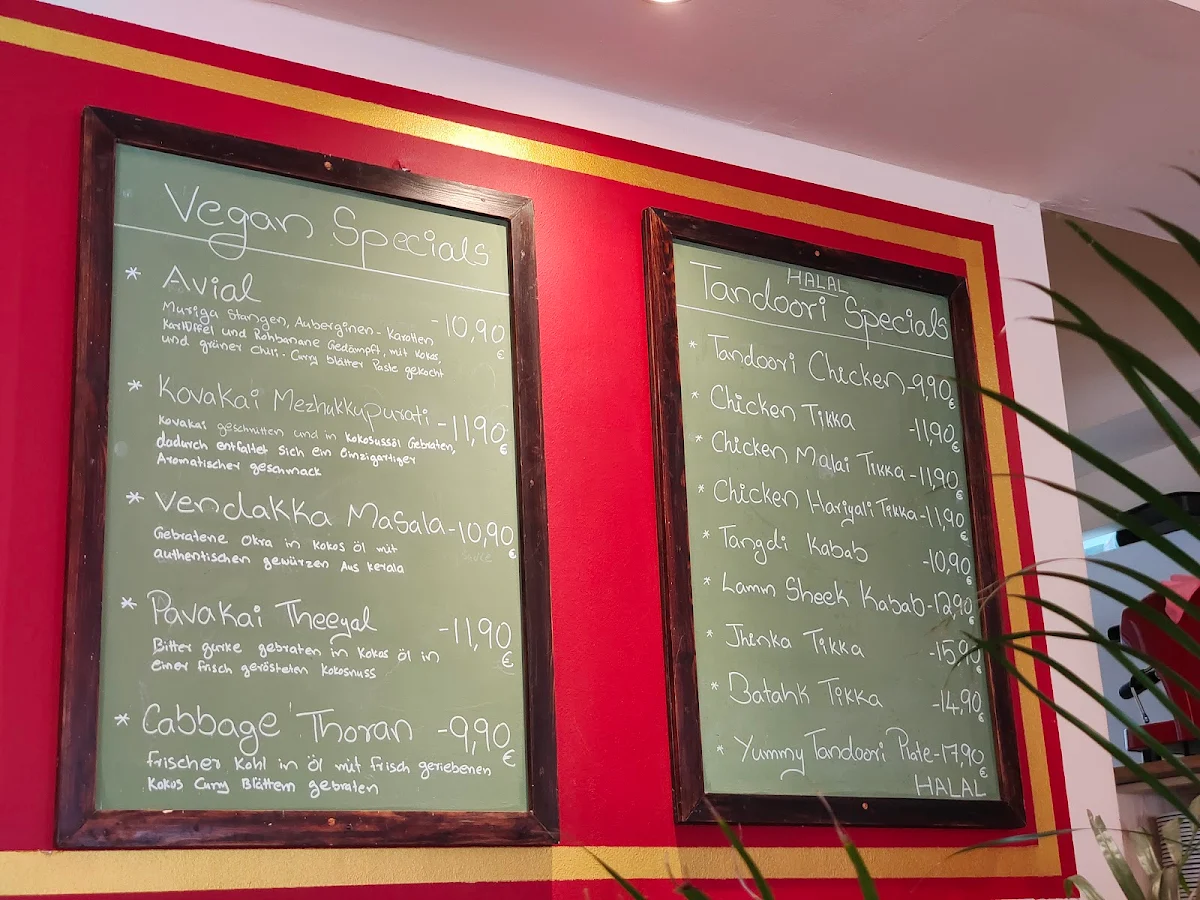 Vegan Specials
* Avial -10,90 €
Muriga Stangen, Auberginen - Karotten
Kartöffel und Rohbanane Gedämpft, mit Kokos,
und grüner Chili - Curry blätter Paste gekocht
* Kovakai Mezhukkupurati -11,90 €
Kovakai geschnitten und in Kokosussöl Gebraten,
dadurch entfaltet sich ein Einzigartiger
Aromatischer geschmack
* Vendakka Masala -10,90 €
Gebratene Okra in Kokos öl mit
authentischen gewürzen Aus Kerala
* Pavakai Theeyal -11,90 €
Bitter gurke gebraten in Kokos öl in
einer frisch gerösteten Kokosnuss
* Cabbage Thoran -9,90 €
frischer Kohl in öl mit frisch geriebenen
Kokos Curry Blättern gebraten
HALAL
Tandoori Specials
* Tandoori Chicken -9,90 €
* Chicken Tikka -11,90 €
* Chicken Malai Tikka -11,90 €
* Chicken Hariyali Tikka -11,90 €
* Tangdi Kabab -10,90 €
* Lamm Sheek Kabab -12,90 €
* Jhinka Tikka -15,90 €
* Batahk Tikka -14,90 €
* Yummy Tandoori Plate -17,90 €
HALAL